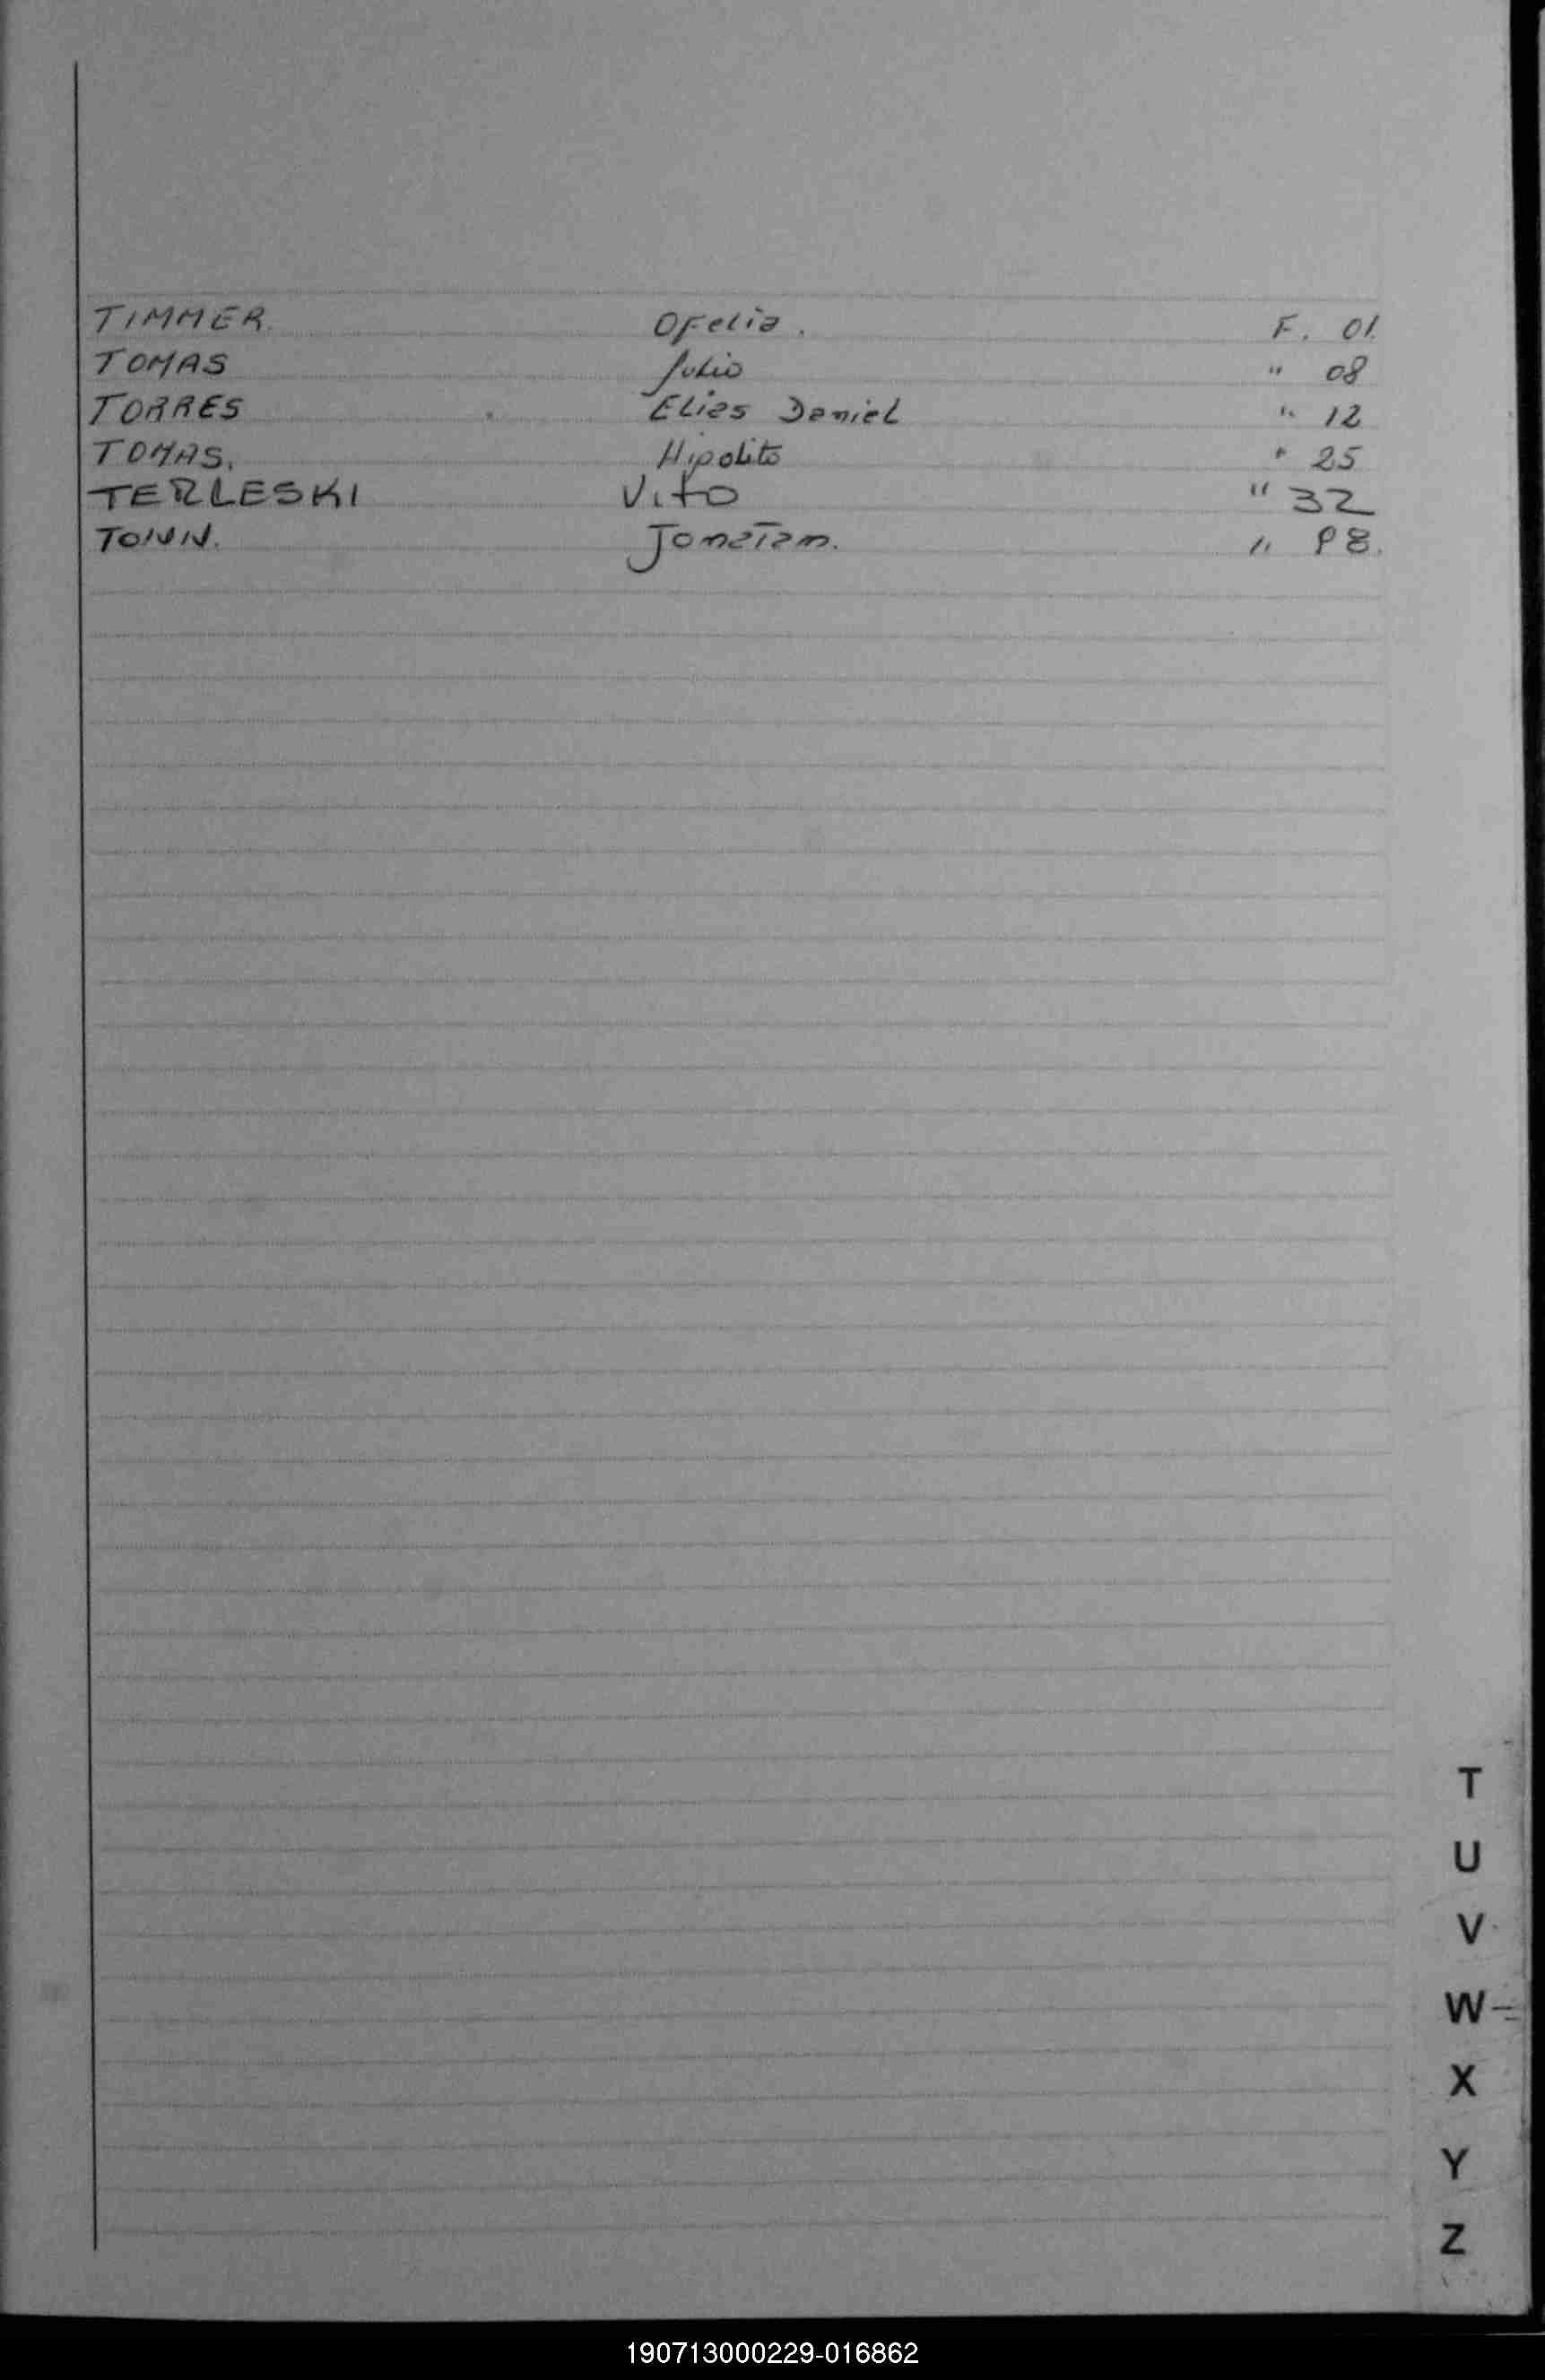 TIMMER. Ofelia. F. 01.
TOMAS Julio " 08
TORRES Elias Daniel " 12
TOMAS. Hipolito " 25
TERLESKI Vito " 32
TONN. Jonatan. " 98.
T
U
V
W
X
Y
Z
190713000229-016862